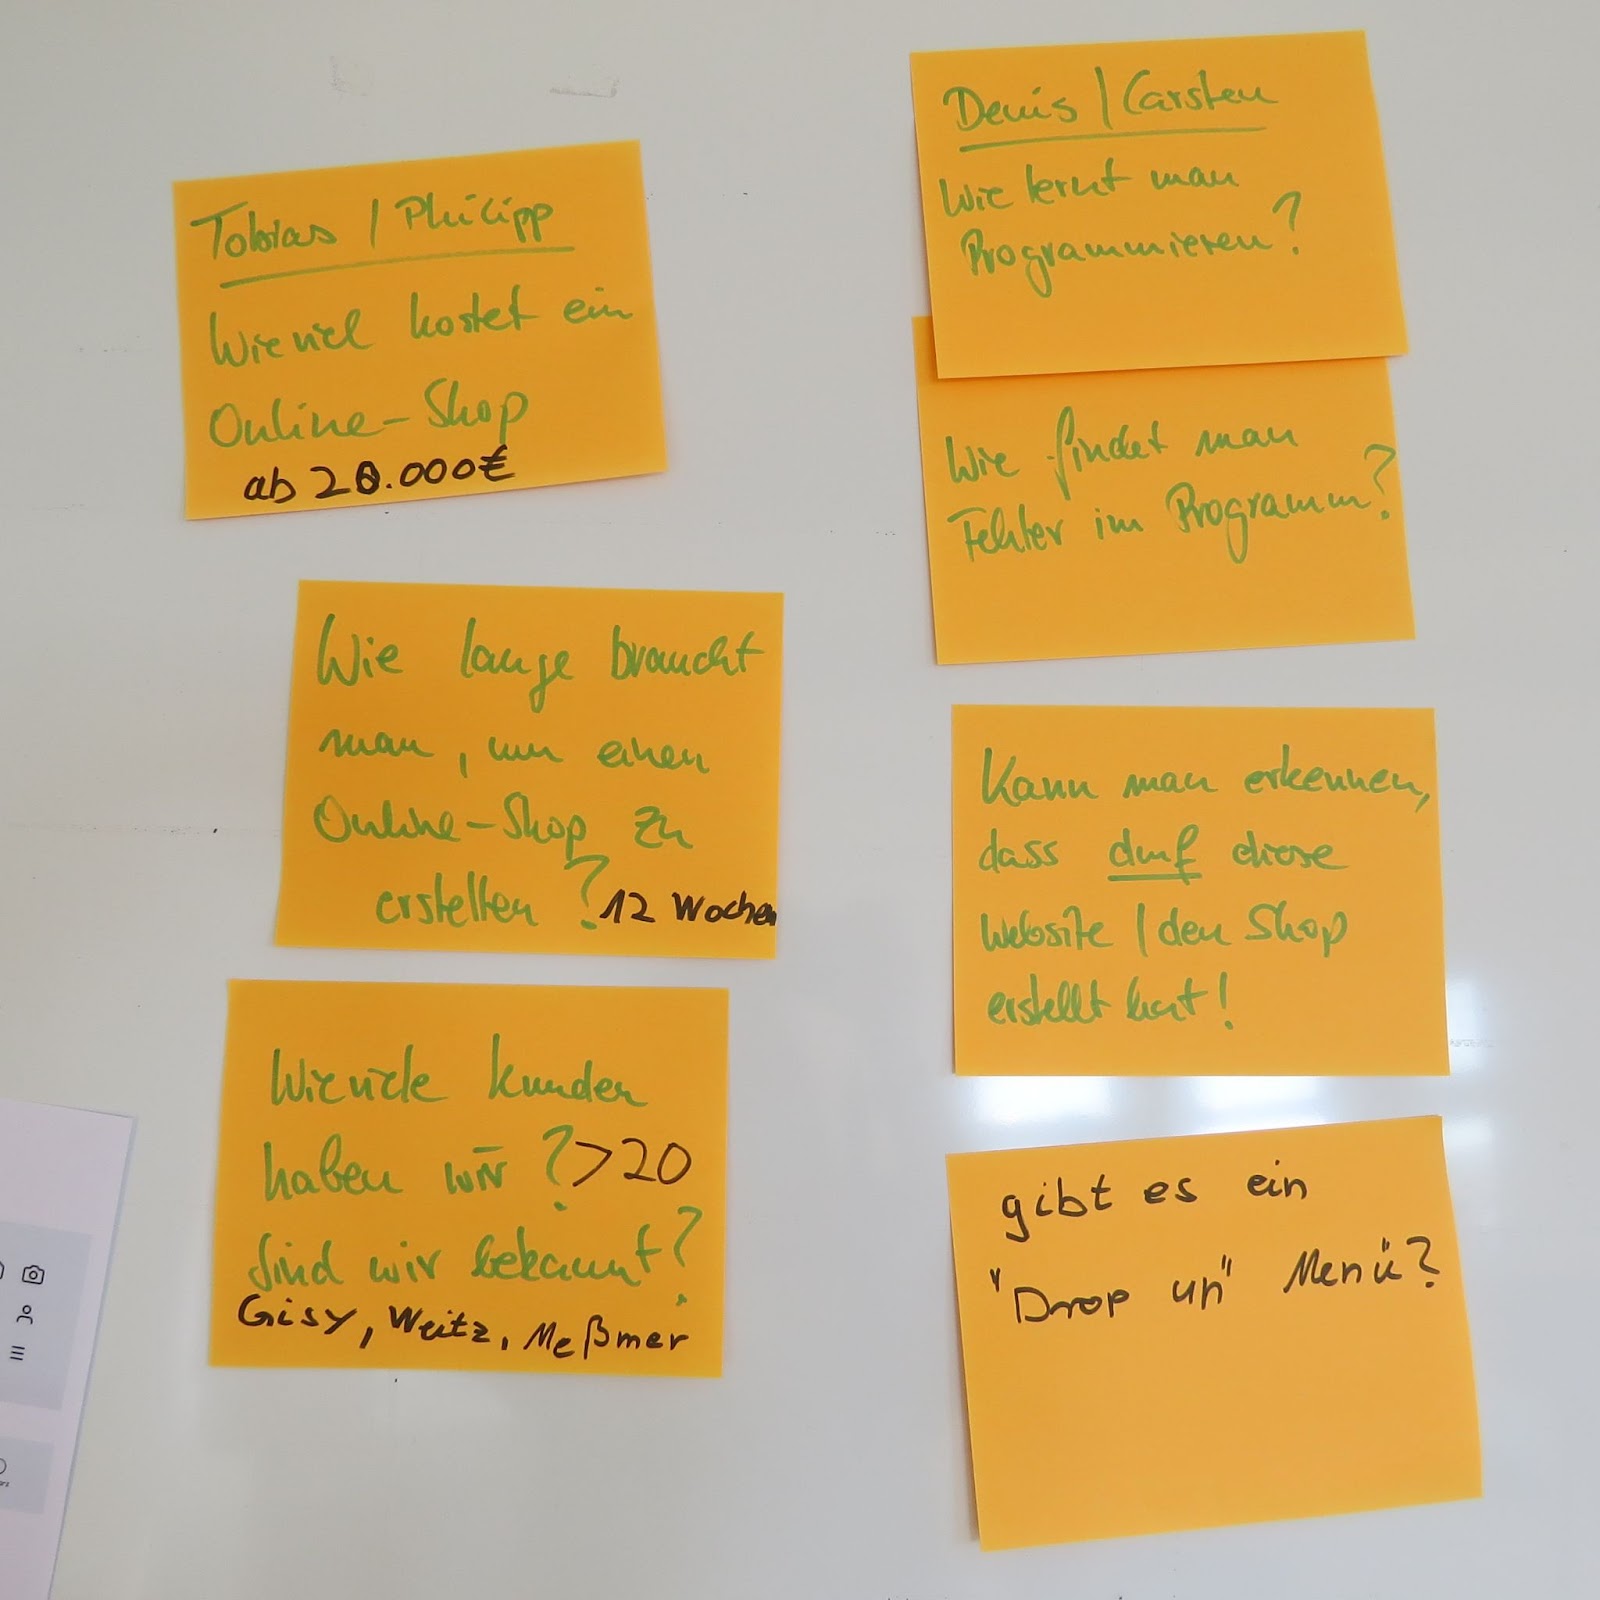 Tobias / Philipp
Wieviel kostet ein
Online-Shop
ab 20.000€
Wie lange braucht
man, um einen
Online-Shop zu
erstellen? 12 Wochen
Wieviele Kunden
haben wir? >20
Sind wir bekannt?
Gisy, Weitz, Meßmer
Denis / Carsten
Wie lernt man
Programmieren?
Wie findet man
Fehler im Programm?
Kann man erkennen,
dass dmf diese
Website / den Shop
erstellt hat!
gibt es ein
"Drop up" Menü?